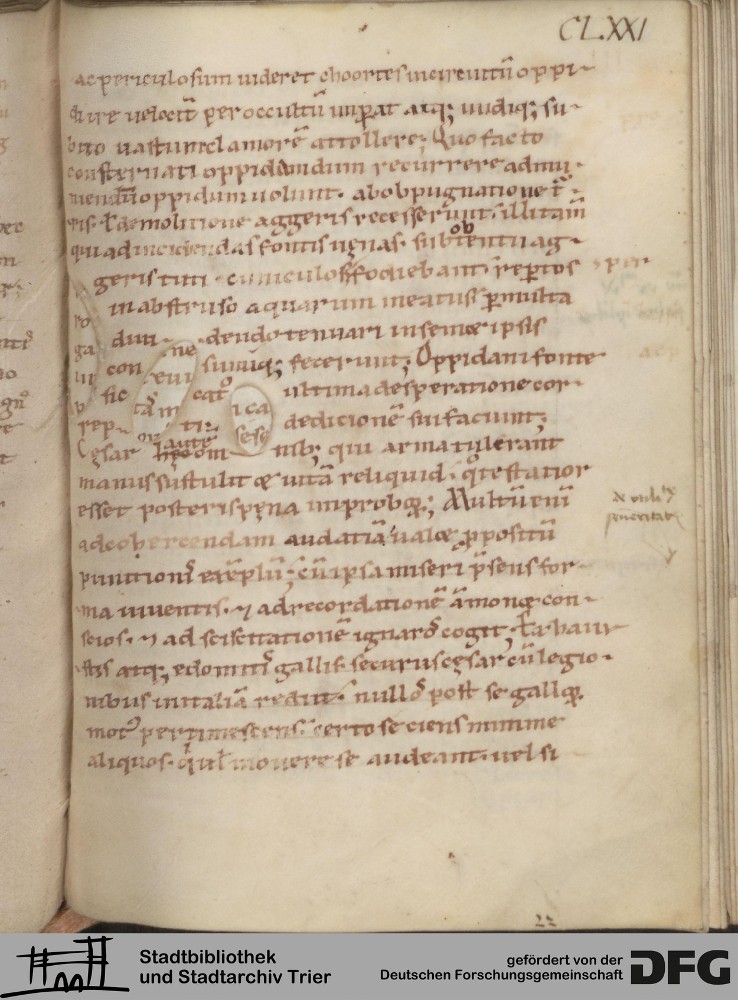 CLXXI
ac periculosum uideret choortes incircuitū oppi-
dire uelocit̄ per occultū imp̄at atq; undiq; su-
bito uastum clamorē attollere; Quo facto
consternati oppidani dum recurrere admu-
niendū oppidum uolunt. ab obpugnatione t̄r-
ris. t̄ demolitione aggeris recesserunt. illi tam̄
qui ad incidendas fontis uenas. sub obtentu ag-
geris tuti. cuniculos fodiebant. rep̄tos
in abstruso aquarum meatus p̄ multa
diui dendo tenuari inseme ipsis
con sumiq; fecerunt; Oppidani fonte
sic cato ultima desperatione cor-
rep ti dedicionē sui faciunt;
Cęsar autē omnib; qui arma tulerant
manus sustulit & uitā reliquid. q° testatior
esset posteris pęna improboꝝ; Multū enī
ad cohercendam audatiā ualet p̄positū
punitionis exēplū; cū ipsa miseri p̄sens for-
ma uiuentis. ⁊ ad recordationē āmoneꝝ con-
scios. ⁊ ad sciscitationē ignaros cogit;
atq; edomitis gallis. securus cęsar cū legio-
nibus in italiā rediit. nullos post se galloꝝ
motus pertimescens. certo se ciens minime
aliquos. qui t̄ mouere se audeant. uel si
Stadtbibliothek
und Stadtarchiv Trier
gefördert von der
Deutschen Forschungsgemeinschaft
DFG